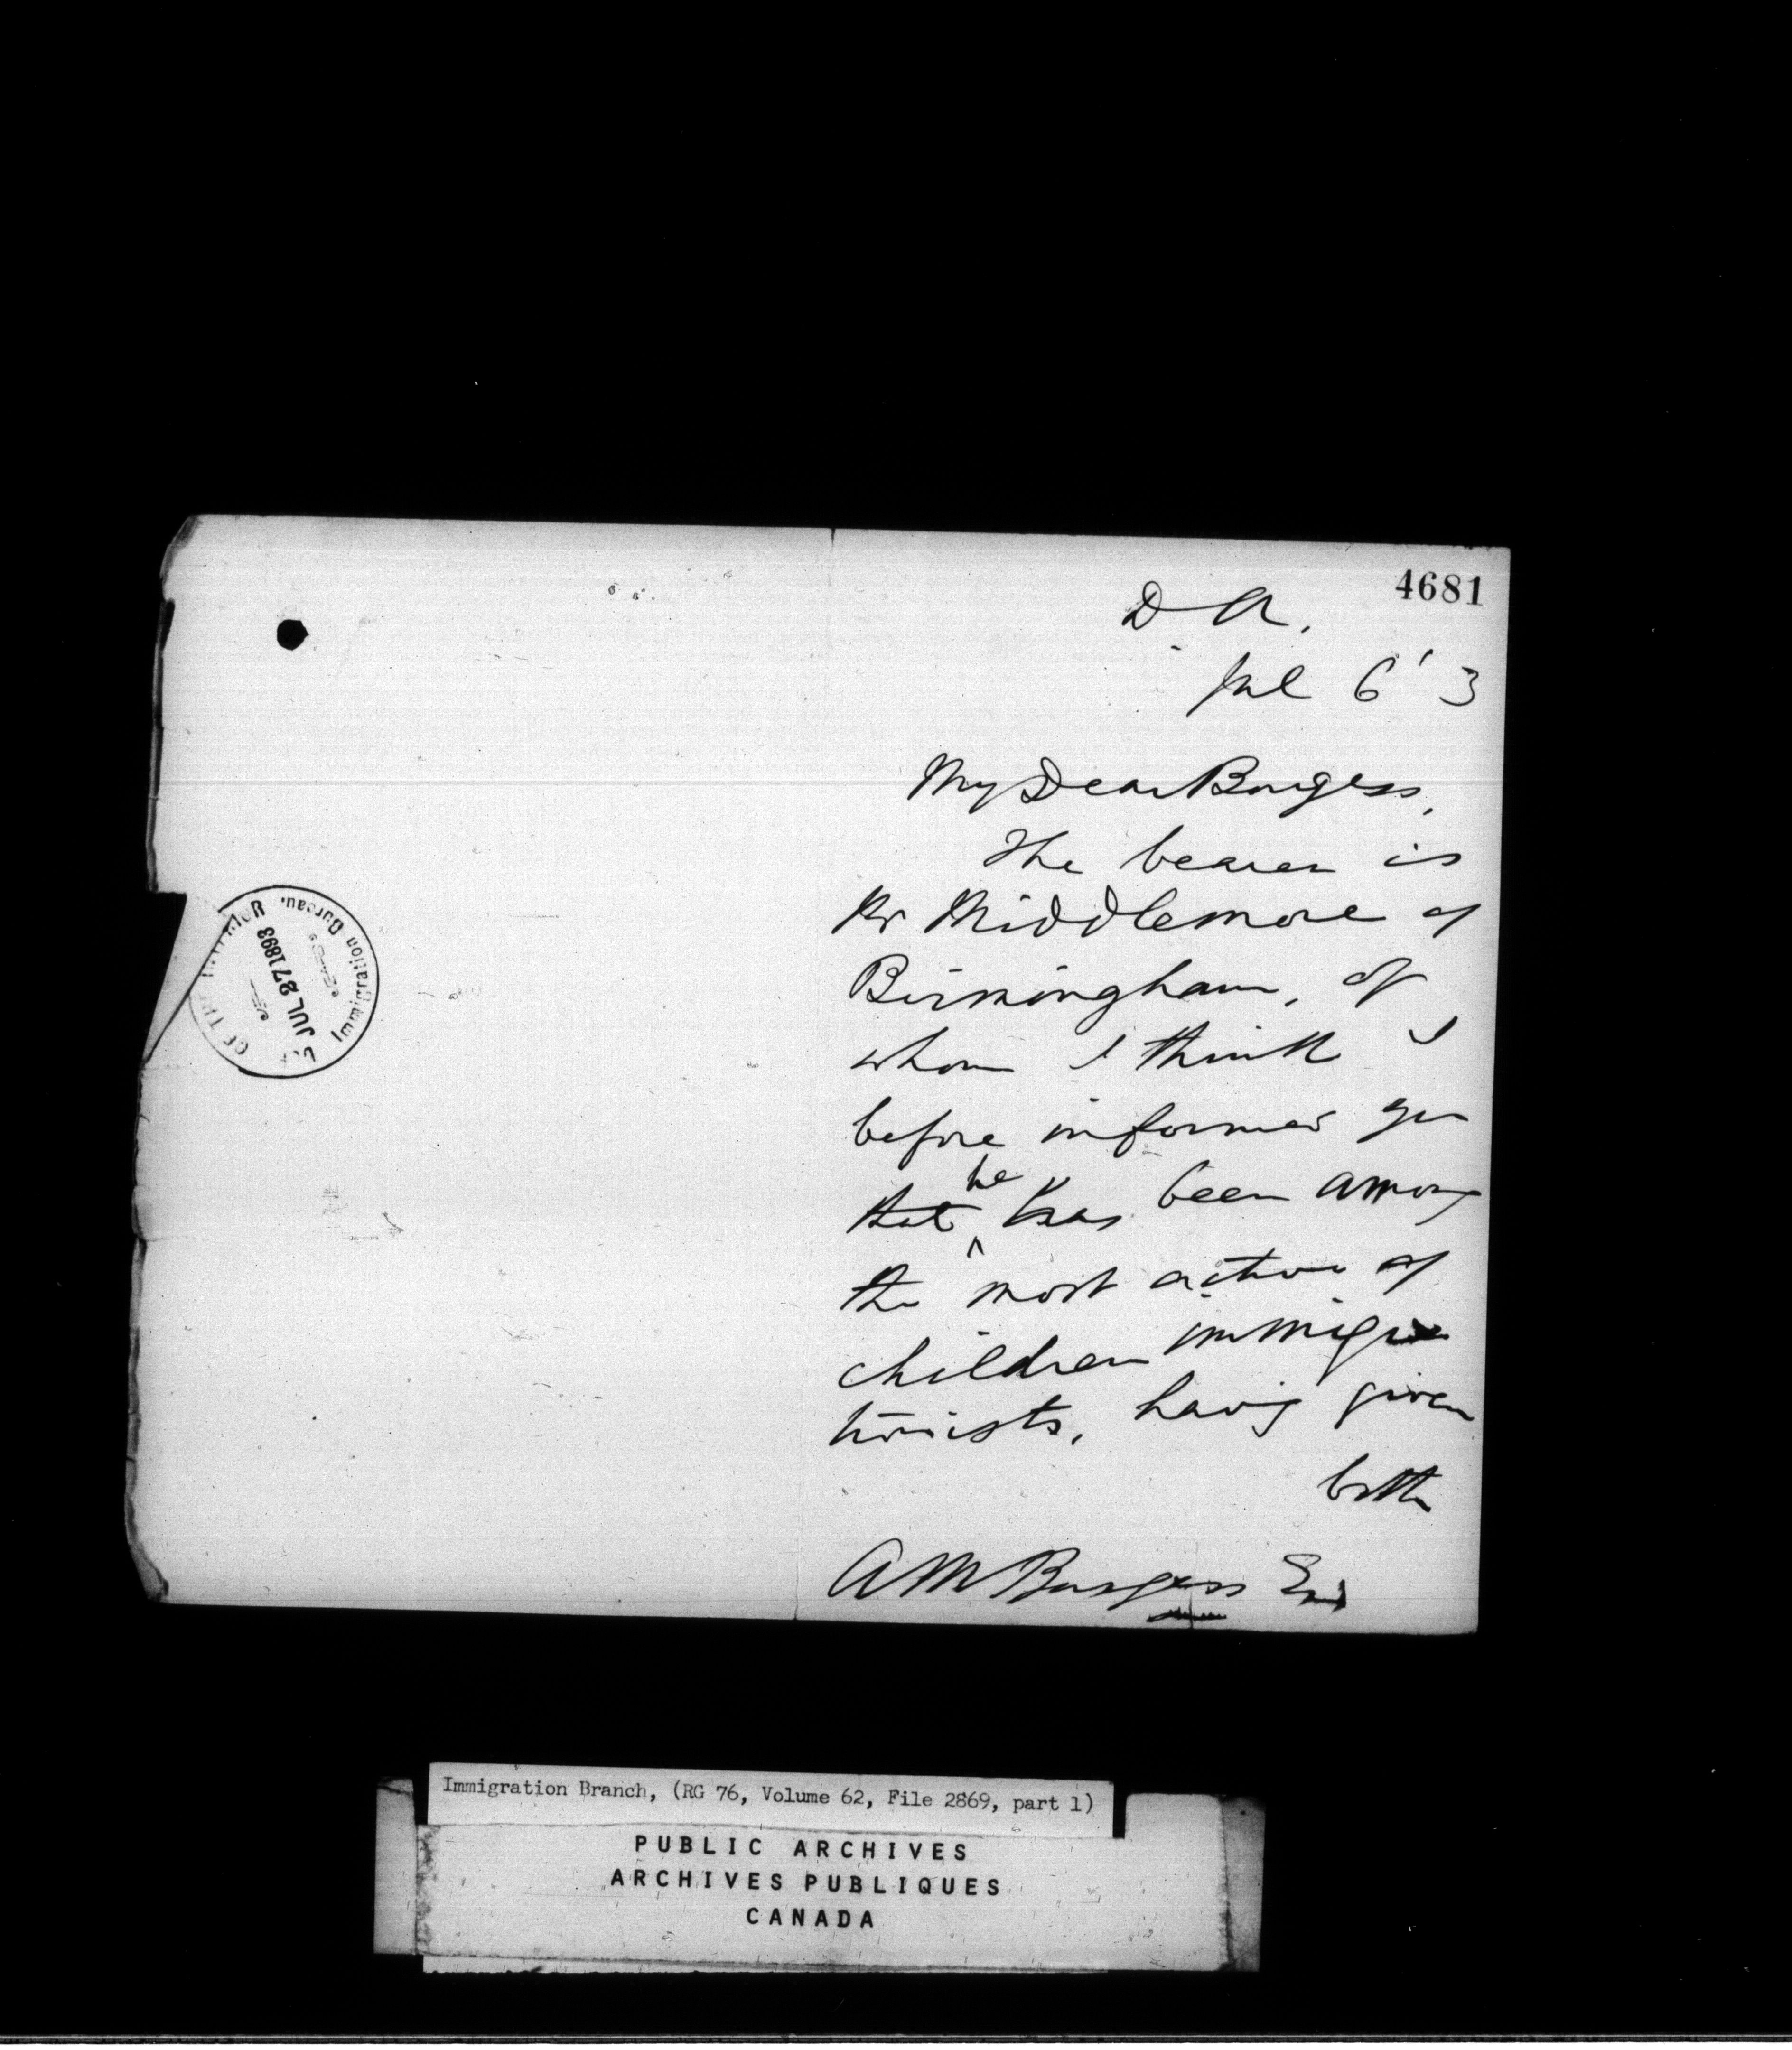 4681
D A.
Jul 6' 3
My Dear Burgess,
The bearer is
Mr Middlemore of
Birmingham, of
whom I think I
before informed you
that he has been among
the most active of
children immigra
tionists, having given
both
A M Burgess Esq
Immigration Bureau.
JUL 27 1893
OF THE
Immigration Branch, (RG 76, Volume 62, File 2869, part 1)
PUBLIC ARCHIVES
ARCHIVES PUBLIQUES
CANADA